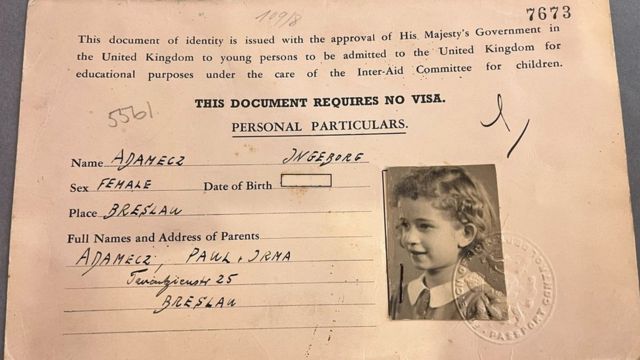 109/8
7673
This document of identity is issued with the approval of His Majesty's Government in
the United Kingdom to young persons to be admitted to the United Kingdom for
educational purposes under the care of the Inter-Aid Committee for children.
5561
THIS DOCUMENT REQUIRES NO VISA.
PERSONAL PARTICULARS.
Name ADAMECZ INGEBORG
Sex FEMALE Date of Birth
Place BRESLAU
Full Names and Address of Parents
ADAMECZ, PAUL, IRMA
25
BRESLAU
PASSPORT CONTROL